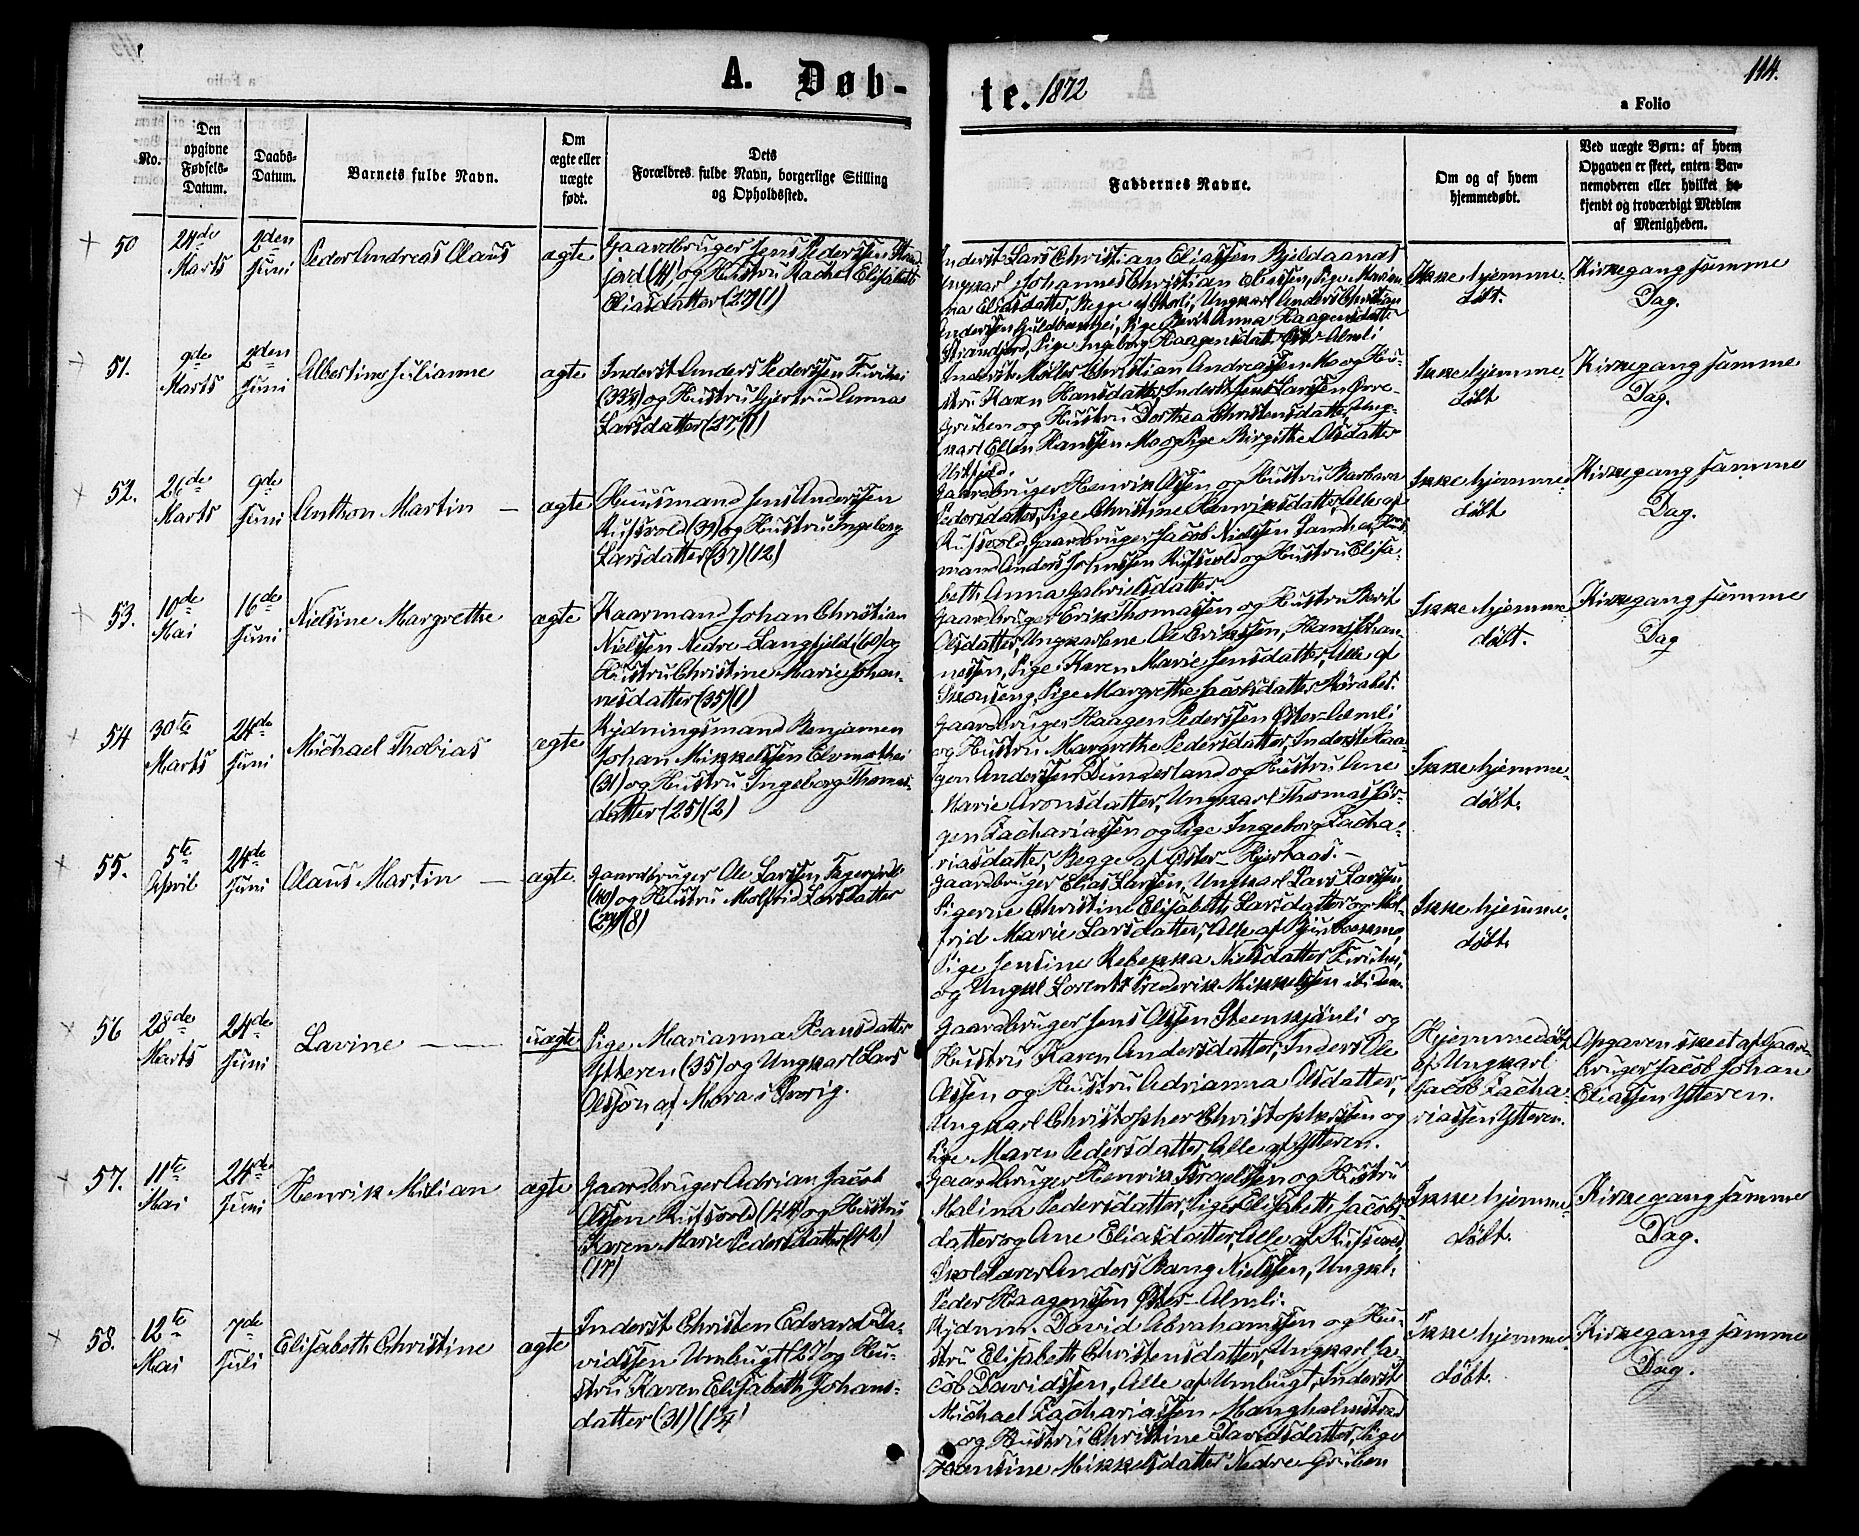 A. Døb-
te. 1872
114.
a Folio
No.
Den
opgivne
Fødsels-
Datum.
Daabs-
Datum.
Barnets fulde Navn.
Om
ægte eller
uægte
født.
Dets
Forældres fulde Navn, borgerlige Stilling
og Opholdssted.
Faddernes Navne.
Om og af hvem
hjemmedøbt.
Ved uægte Børn: af hvem
Opgaven er skeet, enten Bar-
nemoderen eller hvilket be-
kjendt og troværdigt Medlem
af Menigheden.
50
24de
Marts
2den
Juni
Peder Andreas Olaus
ægte
Gaardbruger Jens Pederssen Stor-
jord (41) og Hustru Rachel Elisabeth
Eliasdatter (27) (1)
Inderst Lars Christian Eliassen Bjeldaanæs
Ungkarl Johannes Christian Eliassen, Pige Marian-
na Eliasdatter, Begge af Storli, Ungkarl Anders Christian
Anderssen Guldbrandhei, Pige Berit Anna Haagensdatter
Strandjord, Pige Ingeborg Haagensdatter Øster-Almli
Ikke hjemme-
døbt.
Kirkegang samme
Dag.
51.
9de
Marts
2den
Juni
Albertine Julianne
ægte
Inderst Anders Pederssen Furuhei
(33½) og Hustru Gjertrud Anna
Larsdatter (27) (1)
Inderst Møller Christian Andreassen Mo og Hu-
stru Karen Hansdatter, Inderst Jens Larssen Øvre-
Gruben og Hustru Dorthea Christensdatter, Ung-
karl Ellen Hanssen Mo og Pige Birgitte Olsdatter
Urtfjeld.
Ikke hjemme-
døbt
Kirkegang samme
Dag.
52.
26de
Marts
9de
Juni
Anthon Martin
ægte
Huusmand Jens Anderssen
Rufsvold (39) og Hustru Ingeborg
Larsdatter (37) (12)
Gaardbruger Henrik Olssen og Hustru Barbara
Pedersdatter, Pige Christine Henriksdatter, Alle af
Rufsvold, Gaardbruger Jacob Nielssen Sandhei, Huus-
mand Anders Johnssen Rufsvold og Hustru Elisa-
beth Anna Gabrielsdatter
Ikke hjemme-
døbt
Kirkegang samme
Dag.
53.
10de
Mai
16de
Juni
Nielsine Margrethe
ægte
Kaarmand Johan Christian
Nielssen Nedre-Langfjeld (60) og
Hustru Christine Marie Johan-
nesdatter (35) (1)
Gaardbruger Erik Thomassen og Hustru Berit
Olsdatter, Ungkarlene Ole Erikssen, Hans Johan-
nessen, Pige Karen Marie Jensdatter, Alle af
Skonseng, Pige Margrethe Jacobsdatter Mørabet.
Ikke hjemme-
døbt.
Kirkegang samme
Dag
54
30te
Marts
24de
Juni
Michael Thobias
ægte
Rydningsmand Benjamen
Johan Mikkelssen Elvmøthei
(31) og Hustru Ingeborg Thomas-
datter (25) (2)
Gaardbruger Haagen Pederssen Øster-Almli
og Hustru Margrethe Pedersdatter, Inderst Haa-
gen Anderssen Dunderland og Hustru Ane
Marie Aronsdatter, Ungkarl Thomas Jør-
gen Zachariassen og Pige Ingeborg Zacha-
riasdatter, Begge af Øster-Hjertaas.
Ikke hjemme-
døbt.
55.
5te
April
24de
Juni
Olaus Martin
ægte.
Gaardbruger Ole Larssen Fagerjord
(40) og Hustru Molfrid Larsdatter
(27) (8)
Gaardbruger Elias Larssen, Ungkarl Lars Larssen
Pigerne Christine Elisabeth Larsdatter og Mol-
frid Marie Larsdatter, Alle af Bjurbækmo,
Pige Jensine Rebekka Nielsdatter Furuhei,
og Ungkl. Lorents Frederik Mikkelssen ibidem
Ikke hjemme-
døbt.
56
28de
Marts
24de
Juni
Lavine
uægte
Pige Marianna Hansdatter
Ytteren (35) og Ungkarl Lars
Olssøn af Mora i Sverig.
Gaardbruger Jens Olssen Steenskjønli og
Hustru Karen Andersdatter, Inderst Ole
Olssen og Hustru Adrianna Olsdatter,
Ungkarl Christopher Christopherssen og
Pige Maren Pedersdatter, Alle af Ytteren.
Hjemmedøbt
af Ungkarl
Jacob Zacha-
riassen Ytteren.
Opgaven skeet af Gaard-
bruger Jacob Johan
Eliassen Ytteren.
57.
11te
Mai
24de
Juni
Henrik Milian
ægte
Gaardbruger Adrian Jacob
Olssen Rufsvold (44) og Hustru
Karen Marie Pedersdatter (42)
(17)
Gaardbruger Henrik Israelssen og Hustru
Malina Pedersdatter, Piger Elisabeth Jacobs-
datter og Ane Eliasdatter, Alle af Rufsvold,
Skolelærer Anders Bang Nielssen, Ungkl.
Peder Haagenssen Øster-Almli.
Ikke hjemme-
døbt.
Kirkegang samme
Dag.
58.
12te
Mai
7de
Juli
Elisabeth Christine
ægte
Inderst Christen Edvard Da-
vidssen Umbugt (27) og Hu-
stru Karen Elisabeth Johans-
datter (31) (1¼)
Rydnm. David Abrahamssen og Hu-
stru Elisabeth Christensdatter, Ungkarl Ja-
cob Davidssen, Alle af Umbugt, Inderst
Michael Zachariassen Mangholmstrad
og Hustru Christine Davidsdatter, Pige
Hansine Mikkelsdatter Nedre Gruben
Ikke hjemme-
døbt.
Kirkegang samme
Dag.